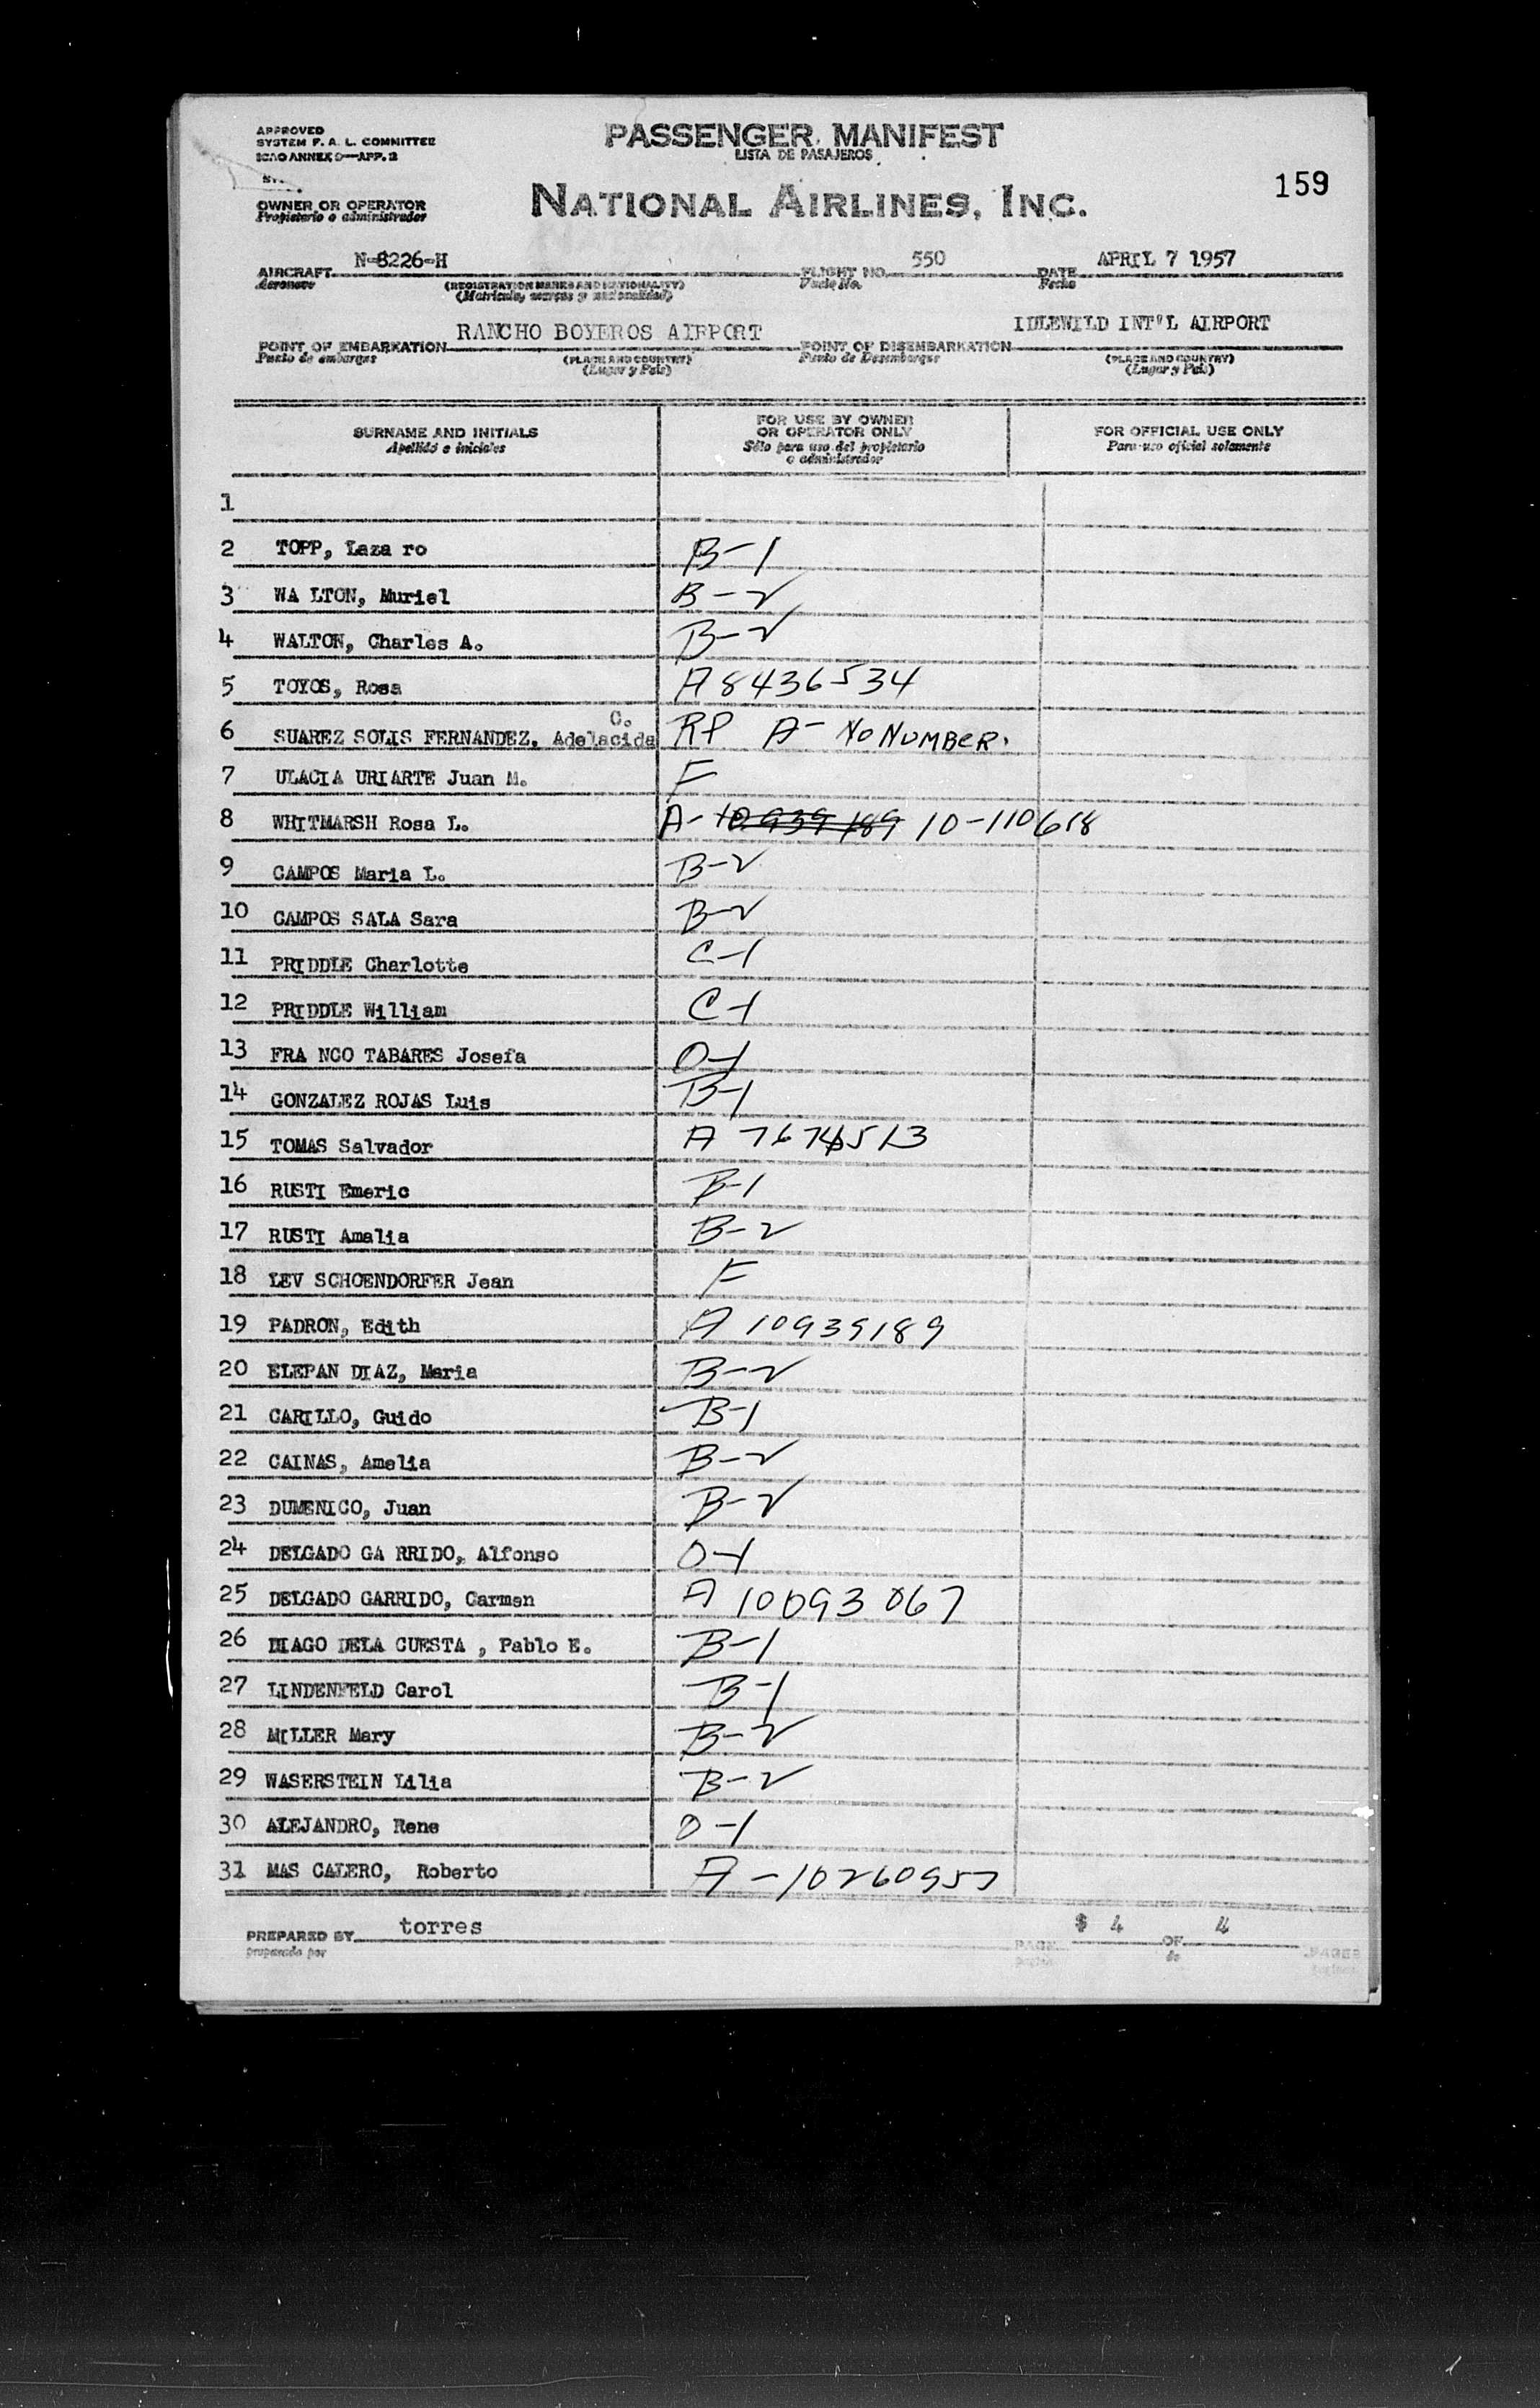 APPROVED
SYSTEM F. A. L. COMMITTEE
ICAO ANNEX 9—APP. 2
PASSENGER MANIFEST
LISTA DE PASAJEROS
159
OWNER OR OPERATOR
Propietario o administrador
NATIONAL AIRLINES, INC.
AIRCRAFT N-8226-H FLIGHT NO. 550 DATE APRIL 7 1957
Aeronave (REGISTRATION MARKS AND NATIONALITY) Vuelo No. Fecha
(Matricula, marcas y nacionalidad)
POINT OF EMBARKATION RANCHO BOYEROS AIRPORT POINT OF DISEMBARKATION IDLEWILD INT'L AIRPORT
Punto de embarque (PLACE AND COUNTRY) Punto de Desembarque (PLACE AND COUNTRY)
(Lugar y Pais) (Lugar y Pais)
SURNAME AND INITIALS
Apellido e iniciales
FOR USE BY OWNER
OR OPERATOR ONLY
Sólo para uso del propietario
o administrador
FOR OFFICIAL USE ONLY
Para uso oficial solamente
1
2 TOPP, Laza ro B-1
3 WA LTON, Muriel B-2
4 WALTON, Charles A. B-2
5 TOYOS, Rosa A 8436534
6 SUAREZ SOLIS FERNANDEZ, Adelacida C. RP A- NO NUMBER.
7 ULACIA URIARTE Juan M. F
8 WHITMARSH Rosa L. A- 10939189 10-110618
9 CAMPOS Maria L. B-2
10 CAMPOS SALA Sara B-2
11 PRIDDLE Charlotte C-1
12 PRIDDLE William C-1
13 FRA NCO TABARES Josefa O-1
14 GONZALEZ ROJAS Luis B-1
15 TOMAS Salvador A
16 RUSTI Emeric B-1
17 RUSTI Amalia B-2
18 LEV SCHOENDORFER Jean F
19 PADRON, Edith A 10939189
20 ELEPAN DIAZ, Maria B-2
21 CARILLO, Guido B-1
22 CAINAS, Amelia B-2
23 DUMENICO, Juan B-2
24 DELGADO GA RRIDO, Alfonso O-1
25 DELGADO GARRIDO, Carmen A 10093067
26 DIAGO DELA CUESTA , Pablo E. B-1
27 LINDENFELD Carol B-1
28 MILLER Mary B-2
29 WASERSTEIN Lilia B-2
30 ALEJANDRO, Rene O-1
31 MAS CALERO, Roberto A-10260957
PREPARED BY torres PAGE $ 4 OF 4 PAGES
preparado por pagina de paginas